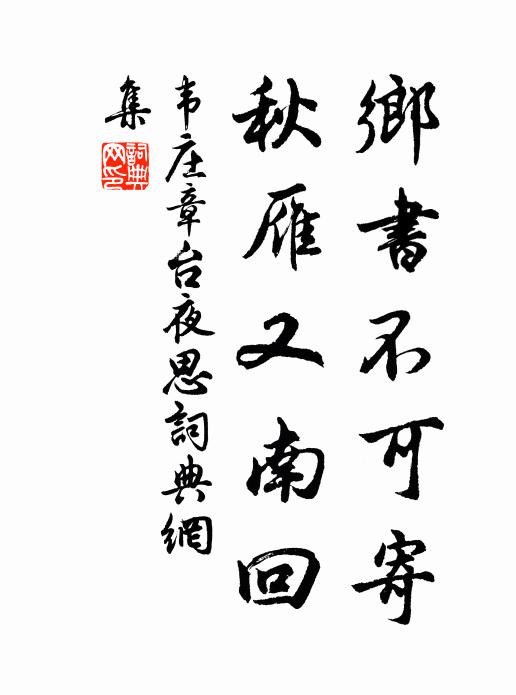 鄉書不可寄
秋雁又南回
韦庄章台夜思詞典網
集
詞典网印